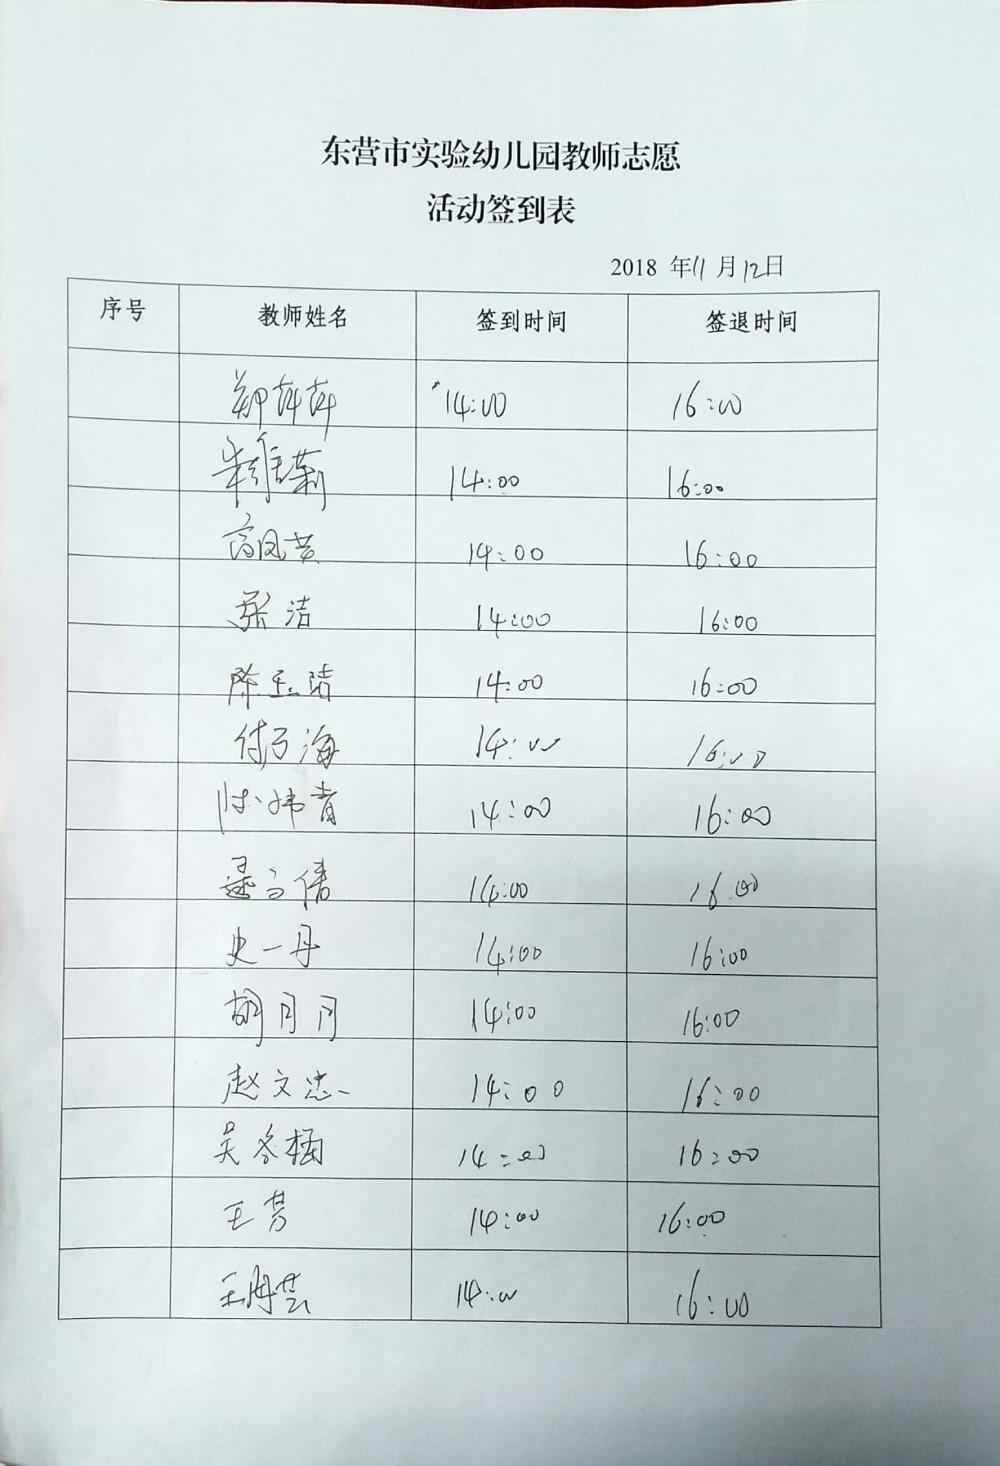 东营市实验幼儿园教师志愿
活动签到表
2018 年11月12日
序号 教师姓名 签到时间 签退时间
郑萍萍 14:00 16:00
朱维莉 14:00 16:00
高凤英 14:00 16:00
张洁 14:00 16:00
陈玉洁 14:00 16:00
付海 14:00 16:00
陈炜青 14:00 16:00
倩 14:00 16:00
史一丹 14:00 16:00
胡月月 14:00 16:00
赵文忠 14:00 16:00
吴冬梅 14:00 16:00
王芳 14:00 16:00
王丹芸 14:00 16:00